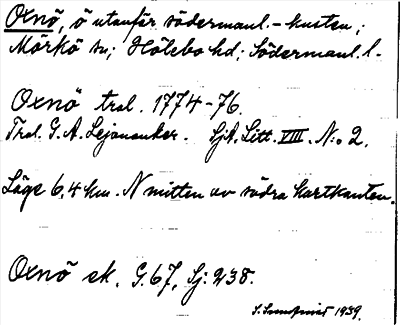 Oxnö, ö utanför södermanl.-kusten;
Mörkö sn; Hölebo hd; Södermanl. l.
Oxnö tral. 1774-76.
Tral. G. A. Lejonanker. SjA. Litt. VIII. N:o 2.
Läge 6,4 km. N mitten av södra kartkanten.
Oxnö ek. G. 67, Sj: 238.
S. 1939.